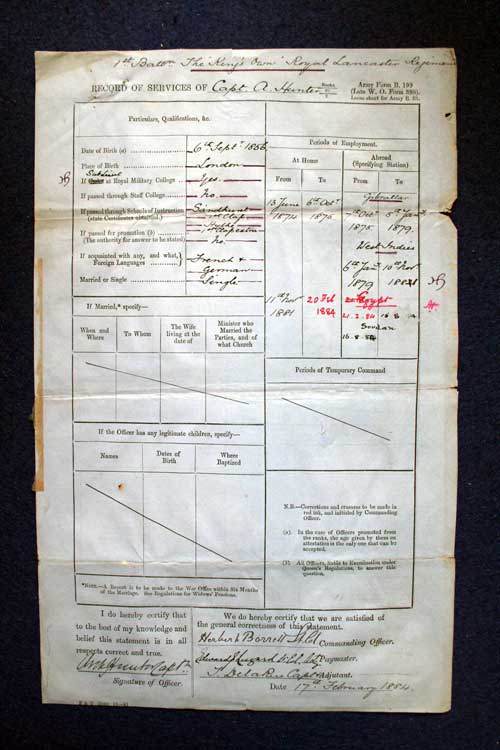 1st Battn The "King's Own" Royal Lancaster Regiment
RECORD OF SERVICES OF Capt A. Hunter
Army Form B. 199
(Late W. O. Form 898).
Loose sheet for Army B. 83.
Particulars, Qualifications, &c.
Date of Birth (a) 6th Septr 1856
Place of Birth London
If at Royal Military College Yes.
If passed through Staff College No.
If passed through Schools of Instruction Sandhurst
(state Certificates obtained.) 1st Class
If passed for promotion (b)
(The authority for answer to be stated) No.
If acquainted with any, and what, Foreign Languages French & German
Married or Single Single
Periods of Employment.
At Home
Abroad
(Specifying Station)
From To From To
Gibraltar
13 June 1874 6th Octr 1875 7th Octr 1875 5th Jan 1879.
West Indies
6th Jan 1879 10th Nov 1881
11th Nov 1881 20 Feb 1884
Egypt
21.2.84
Soudan
16.8.84
If Married,* specify—
When and Where
To Whom
The Wife living at the date of
Minister who Married the Parties, and of what Church
Periods of Temporary Command
If the Officer has any legitimate children, specify—
Names
Dates of Birth
Where Baptized
N.B.—Corrections and erasures to be made in red ink, and initialed by Commanding Officer.
(a). In the case of Officers promoted from the ranks, the age given by them on attestation is the only one that can be accepted.
(b). All Officers, liable to Examination under Queen's Regulations, to answer this question.
*NOTE.—A Report is to be made to the War Office within Six Months of the Marriage. See Regulations for Widows' Pensions.
I do hereby certify that to the best of my knowledge and belief this statement is in all respects correct and true.
Hunter Captn
Signature of Officer.
We do hereby certify that we are satisfied of the general correctness of this statement.
Herbert Borrell Commanding Officer.
Paymaster.
Capt Adjutant.
Date 17th February 1884.